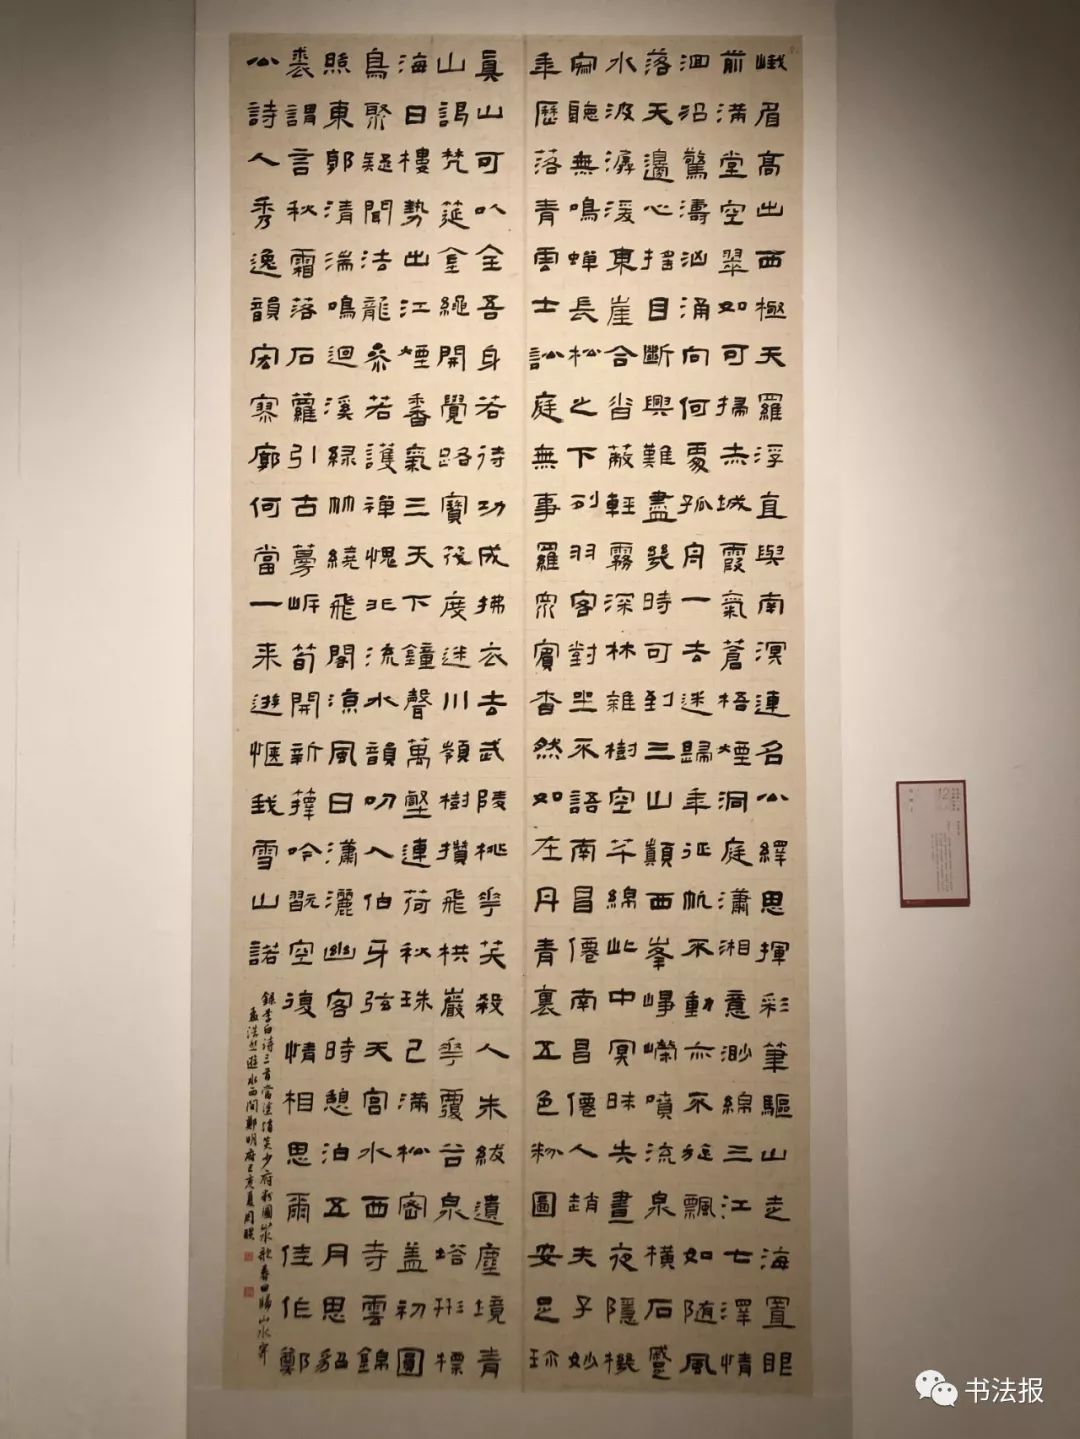 峨眉高出西極天羅浮直與南溟連名公繹思揮彩筆驅山走海置眼
前滿堂空翠如可掃赤城霞氣蒼梧煙洞庭瀟湘意渺綿三江七澤情
洄沿驚濤洶涌向何處孤舟一去迷歸年征帆不動亦不旋飄如隨風
落天邊心搖目斷興難盡幾時可到三山巔西峯崢嶸噴流泉橫石蹙
水波潺湲東崖合沓蔽輕霧深林雜樹空芊綿此中冥昧失晝夜隱機
寂聽無鳴蟬長松之下列羽客對坐不語南昌僊南昌僊人趙夫子妙
年歷落青雲士訟庭無事羅衆賓杳然如在丹青裏五色粉圖安足珍
真山可以全吾身若待功成拂衣去武陵桃花笑殺人朱紱遺塵境青
山謁梵筵金繩開覺路寶筏度迷川嶺樹攢飛栱巖花覆谷泉塔形標
海日樓勢出江煙香氣三天下鐘聲萬壑連荷秋珠已滿松密蓋初圓
鳥聚疑聞法龍參若護禪愧非流水韻叨入伯牙弦天宮水西寺雲錦
照東郭清湍鳴迴溪綠竹繞飛閣涼風日瀟灑幽客時憩泊五月思貂
裘謂言秋霜落石蘿引古蔓岍筍開新籜吟翫空復情相思爾佳作鄭
公詩人秀逸韻宏寥廓何當一來遊愜我雪山諾
錄李白詩三首當塗趙炎少府粉圖山水歌春日歸山水寄
孟浩然遊水西簡鄭明府己亥夏周
12
书法报